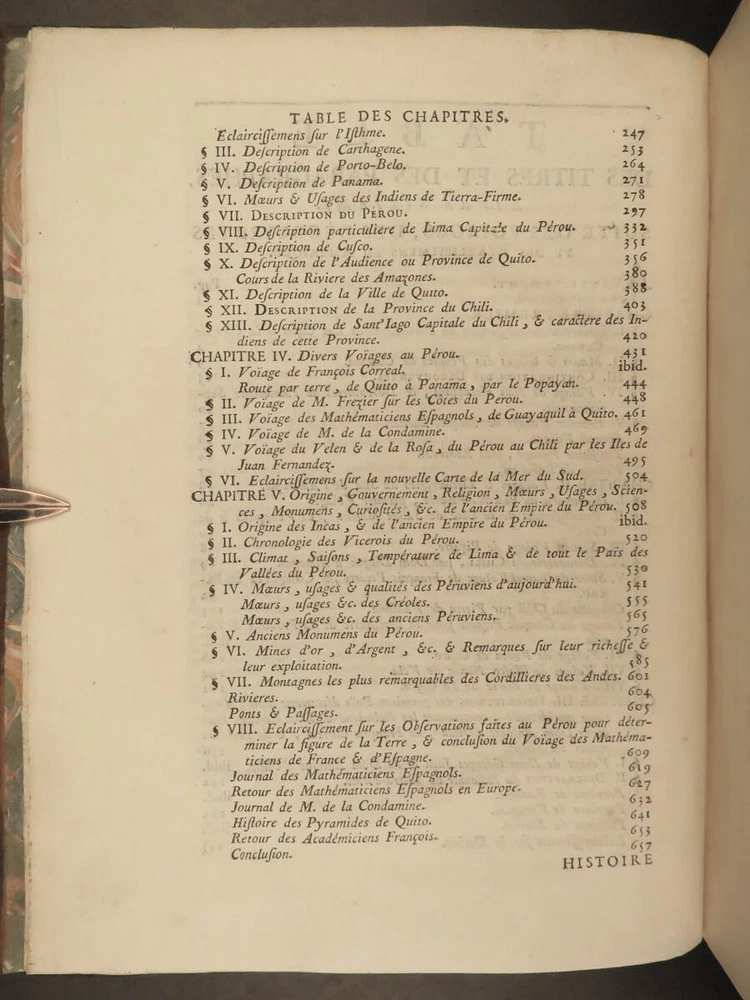 TABLE DES CHAPITRES.
Eclairciſſemens ſur l'Iſthme. 247
§ III. Deſcription de Carthagene. 253
§ IV. Deſcription de Porto-Belo. 264
§ V. Deſcription de Panama. 271
§ VI. Mœurs & Uſages des Indiens de Tierra-Firme. 278
§ VII. DESCRIPTION DU PÉROU. 297
§ VIII. Deſcription particuliere de Lima Capitale du Pérou. 332
§ IX. Deſcription de Cuſco. 351
§ X. Deſcription de l'Audience ou Province de Quito. 356
Cours de la Riviere des Amazones. 380
§ XI. Deſcription de la Ville de Quito. 388
§ XII. DESCRIPTION de la Province du Chili. 403
§ XIII. Deſcription de Sant'Iago Capitale du Chili, & caractere des In-
diens de cette Province. 420
CHAPITRE IV. Divers Voïages au Pérou. 431
§ I. Voïage de François Correal. ibid.
Route par terre, de Quito à Panama, par le Popayan. 444
§ II. Voïage de M. Frezier ſur les Côtes du Pérou. 448
§ III. Voïage des Mathématiciens Eſpagnols, de Guayaquil à Quito. 461
§ IV. Voïage de M. de la Condamine. 469
§ V. Voïage du Velen & de la Roſa, du Pérou au Chili par les Iles de
Juan Fernandez. 495
§ VI. Eclairciſſemens ſur la nouvelle Carte de la Mer du Sud. 504
CHAPITRE V. Origine, Gouvernement, Religion, Mœurs, Uſages, Scien-
ces, Monumens, Curioſités, &c. de l'ancien Empire du Pérou. 508
§ I. Origine des Incas, & de l'ancien Empire du Pérou. ibid.
§ II. Chronologie des Vicerois du Pérou. 520
§ III. Climat, Saiſons, Température de Lima & de tout le Païs des
Vallées du Pérou. 530
§ IV. Mœurs, uſages & qualités des Péruviens d'aujourd'hui. 541
Mœurs, uſages &c. des Créoles. 555
Mœurs, uſages &c. des anciens Péruviens. 565
§ V. Anciens Monumens du Pérou. 576
§ VI. Mines d'or, d'Argent, &c. & Remarques ſur leur richeſſe &
leur exploitation. 585
§ VII. Montagnes les plus remarquables des Cordillieres des Andes. 601
Rivieres. 604
Ponts & Paſſages. 605
§ VIII. Eclairciſſement ſur les Obſervations faites au Pérou pour déter-
miner la figure de la Terre, & concluſion du Voïage des Mathéma-
ticiens de France & d'Eſpagne. 609
Journal des Mathématiciens Eſpagnols. 619
Retour des Mathématiciens Eſpagnols en Europe. 627
Journal de M. de la Condamine. 632
Hiſtoire des Pyramides de Quito. 641
Retour des Académiciens François. 653
Concluſion. 657
HISTOIRE